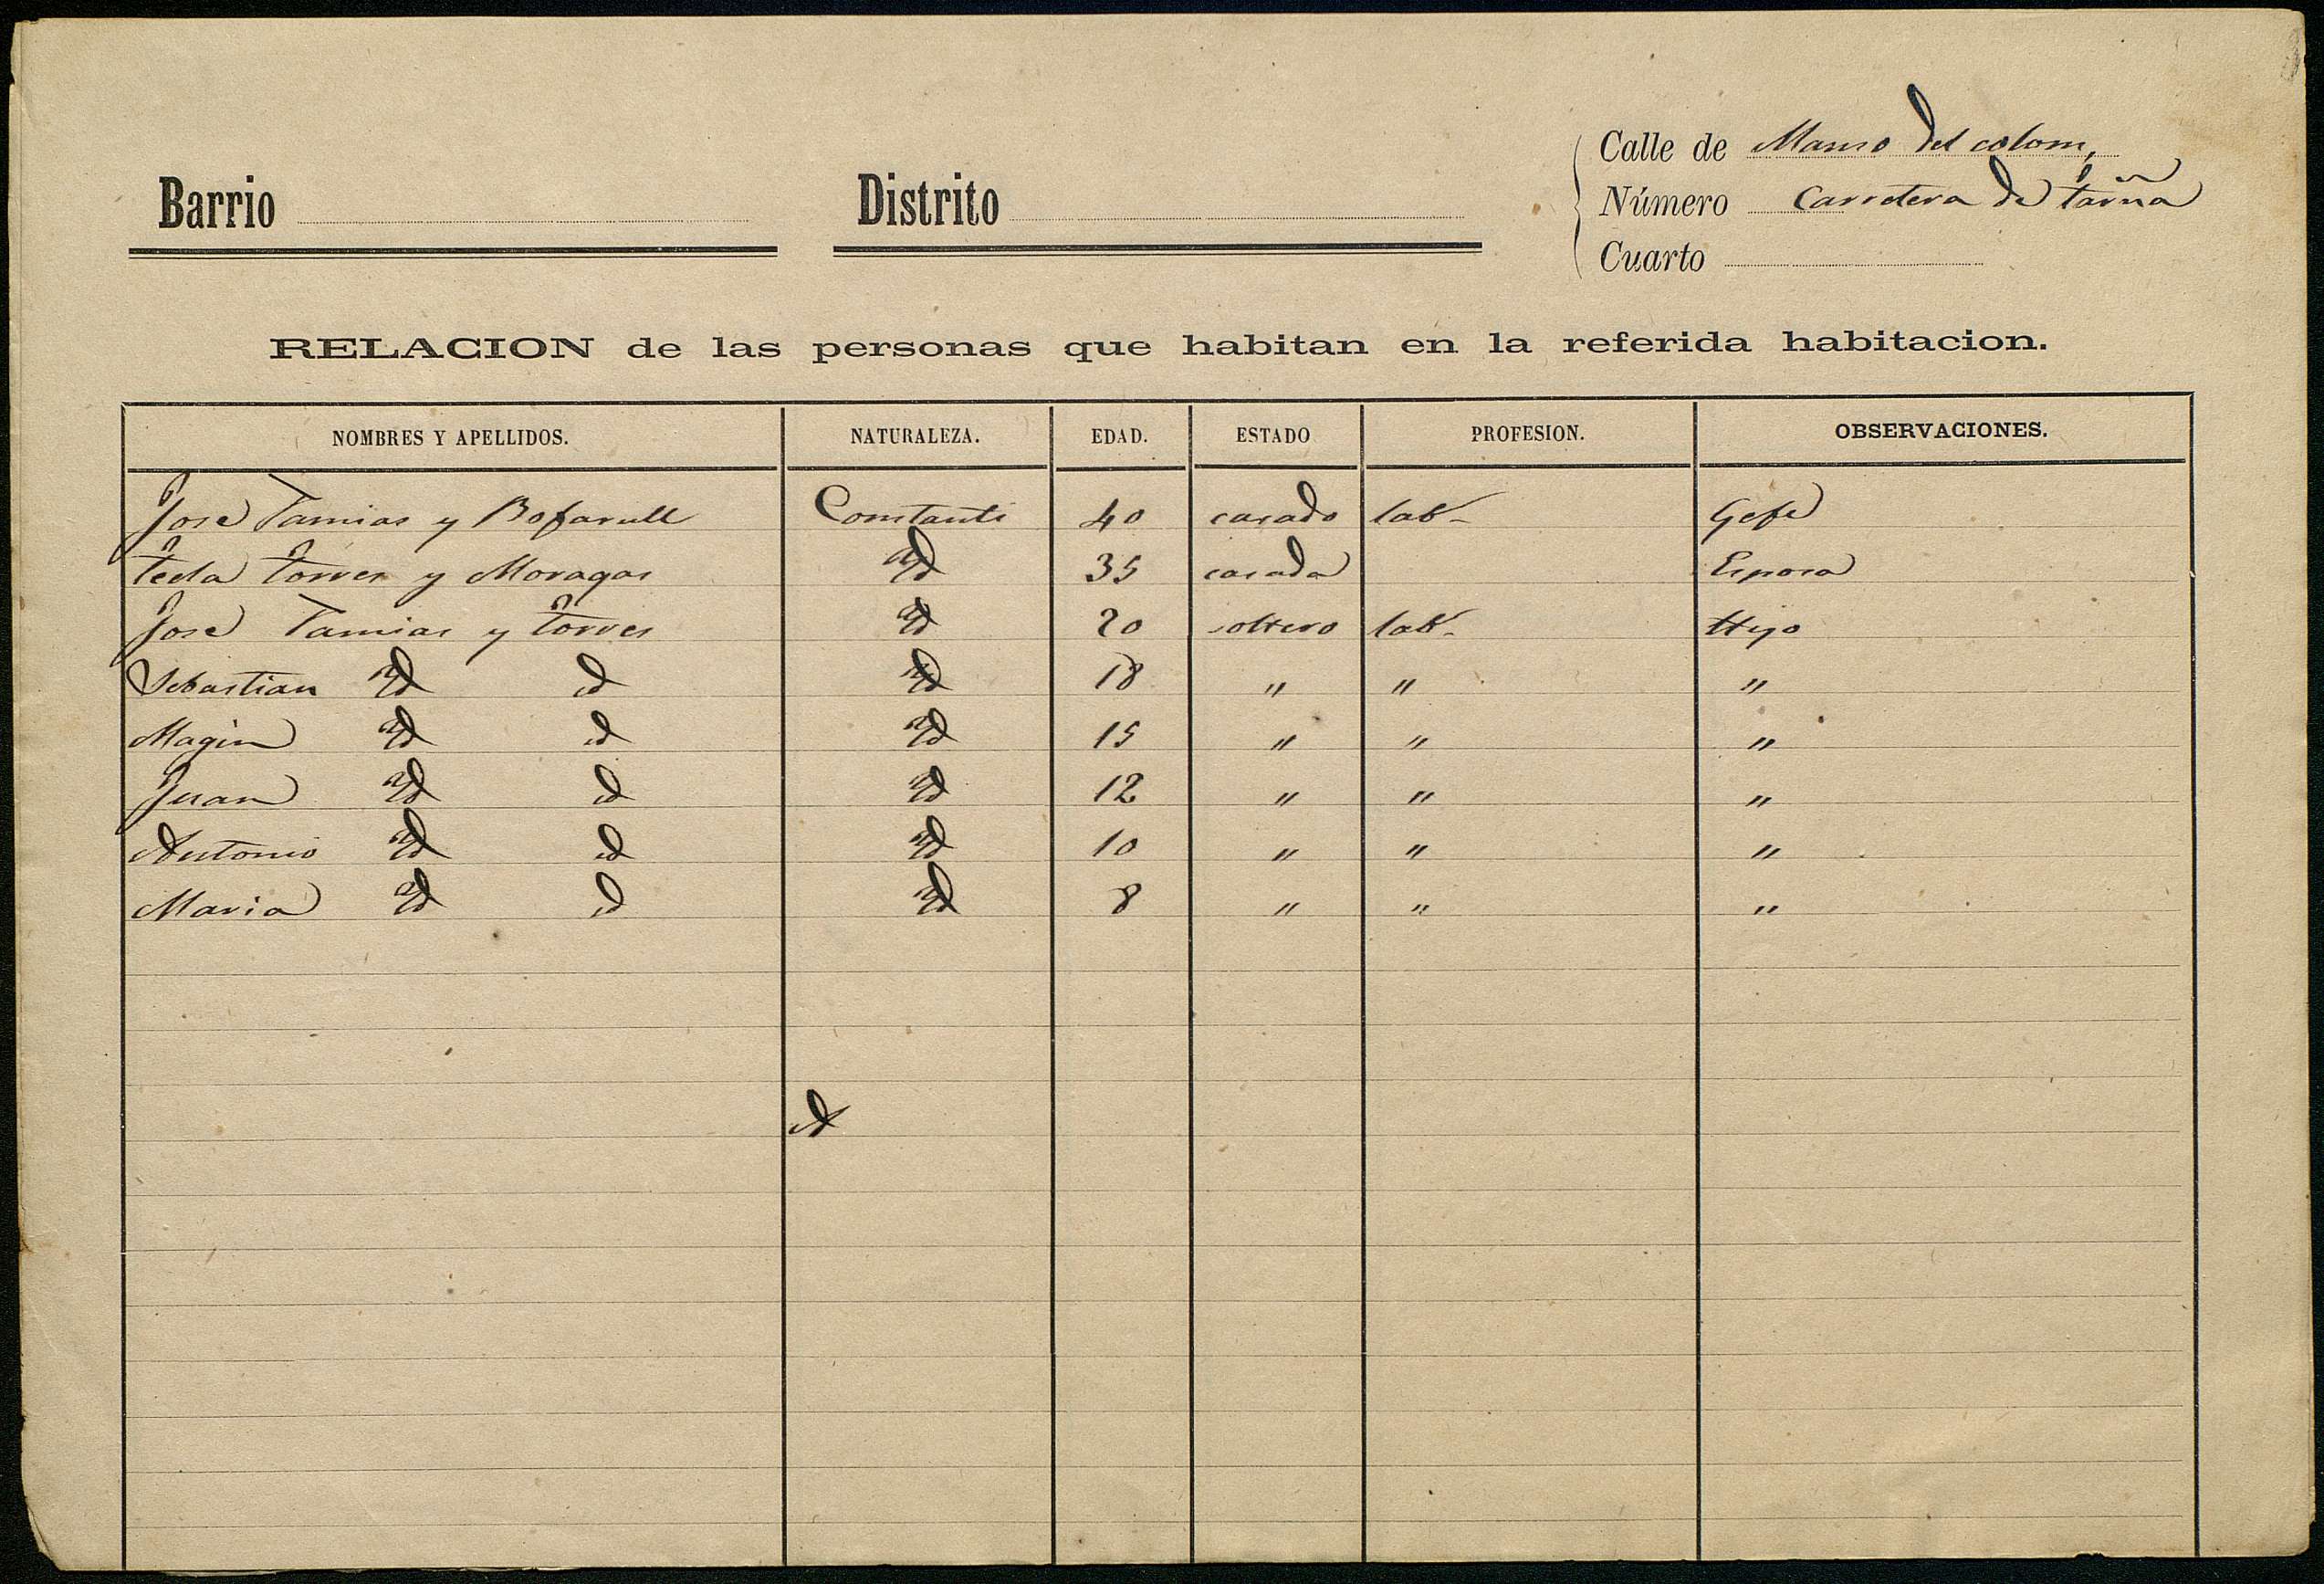 Calle de Manso del colom,
Barrio Distrito Número Carretera de tarña
Cuarto
RELACION de las personas que habitan en la referida habitacion.
NOMBRES Y APELLIDOS. NATURALEZA. EDAD. ESTADO PROFESION. OBSERVACIONES.
Jose Tamias y Bofarull Constanti 40 casado lab- Gefe
tecla torres y Moragas Yd 35 casada Esposa
Jose Tamias y torres Yd 20 soltero lab- Hijo
Sebastian Yd id Yd 18 " " "
Magin Yd id Yd 15 " " "
Juan Yd id Yd 12 " " "
Antonio Yd id Yd 10 " " "
Maria Yd id Yd 8 " " "
id